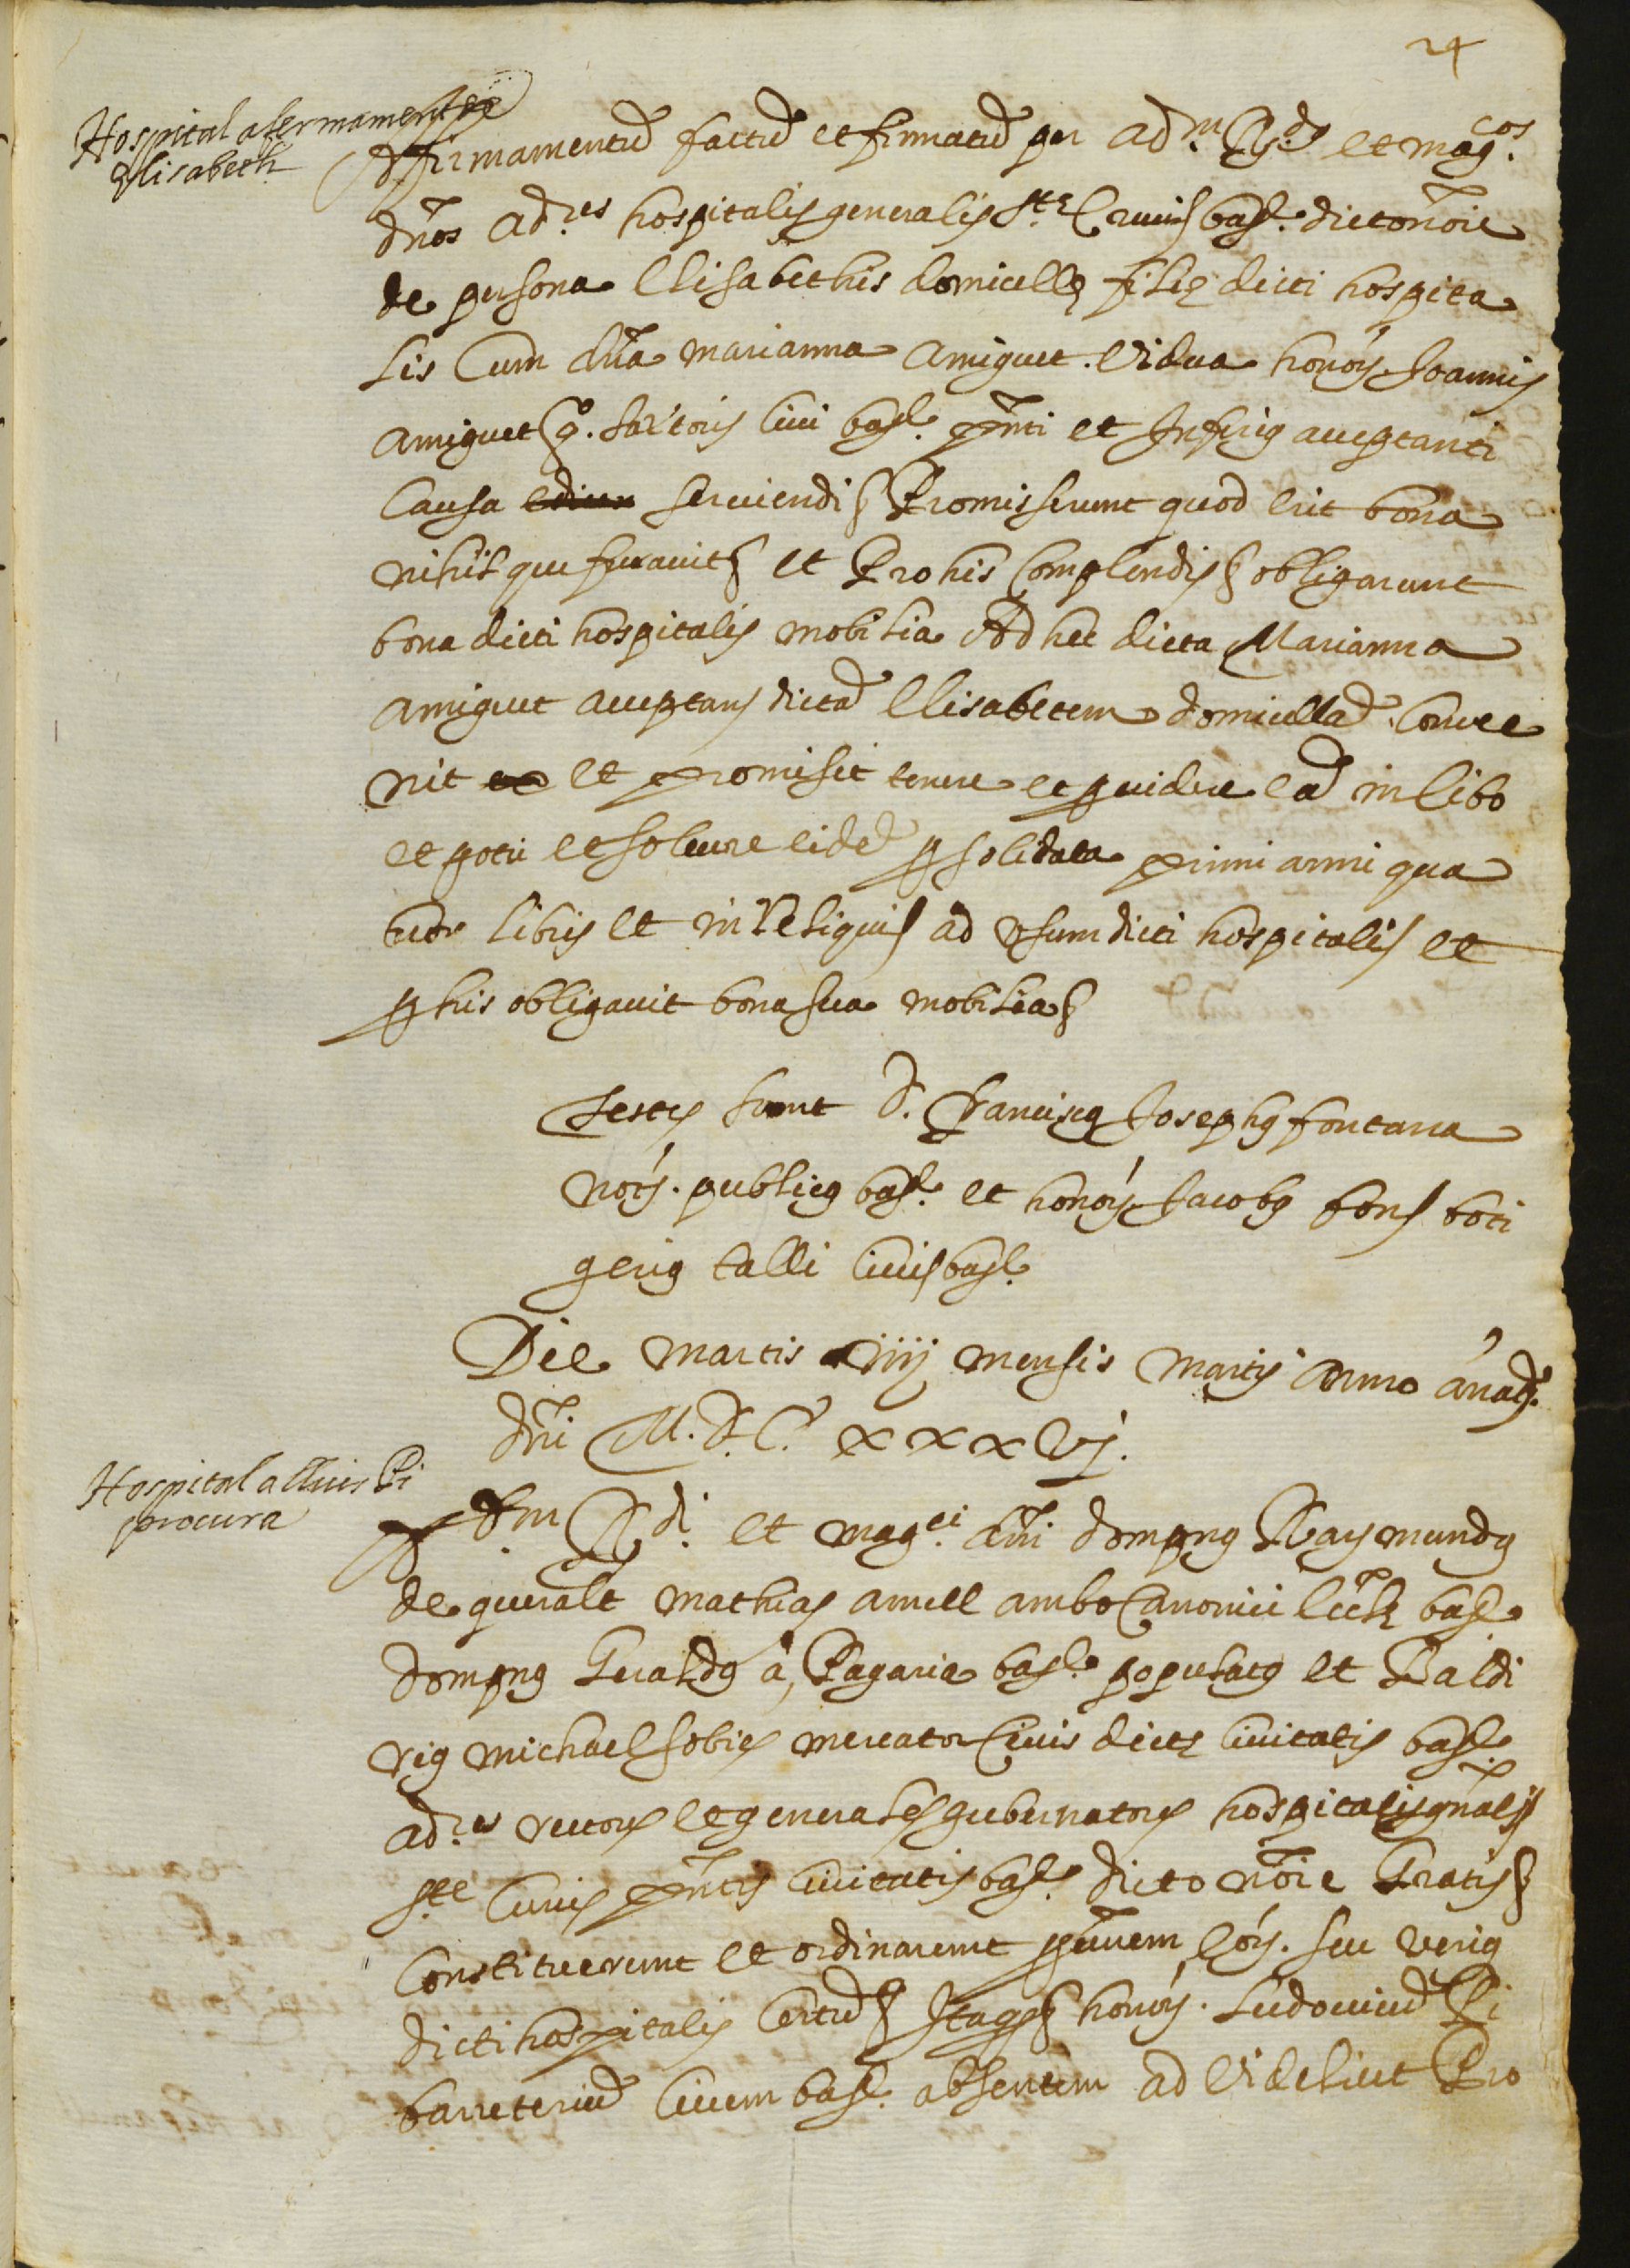 24
Hospital afermament de
Elisabeth
Affirmamentu factu et firmatu per adm. Rdos et magcos.
dños adres hospitalis generalis Ste Crucis barne. dicto noïe
de persona Elisabethis domicelle filie dicti hospita
lis Cum dña marianna Amiguet vidua honor. Joannis
amiguet q. sartoris civi barne. pñti et Infrig acceptanti
Causa serviendi Promisserunt quod erit bona
nihilque furavit et Pro his complendis obligarunt
bona dicti hospitalis mobilia Ad hec dicta Marianna
amiguet acceptans dictã Elisabetem domicellã. Conve
nit et promisit tenere et pvidere eã in Cibo
et potu et solvere eidẽ p solidata primi anni qua
tuor libris et in reliquis ad usum dicti hospitalis et
p his obligavit bona sua mobilia
Testes sunt d. Franciscq Josephq fontana
notq. publicq barne et honorq Jacobq fons boti
gerig talli civis barne
Die martis iiij mensis martij Anno ánatq.
dñi M. D. C. xxxvj.
Hospital a lluis Pi
procura
Adm Rdi. et magci. dñi dompnq Raymundq
de queralt mathias amell ambo Canonici Eccle barne
dompnq Geraldq a, Pagaria barne populatq et Baldi
rig michael sobies mercator Civis dicte civitatis barne
adres rectores et generales gubernatores hospitalis gñalis
Ste Crucis pñtis civitatis barne dicto noïe Gratis
Constituerunt et ordinarunt pcurem eorq. seu verig
dicti hospitalis Certũ Itaqz honorq. Ludovicũ Pi
barreteriũ Civem barne absentem ad videlicet Pro